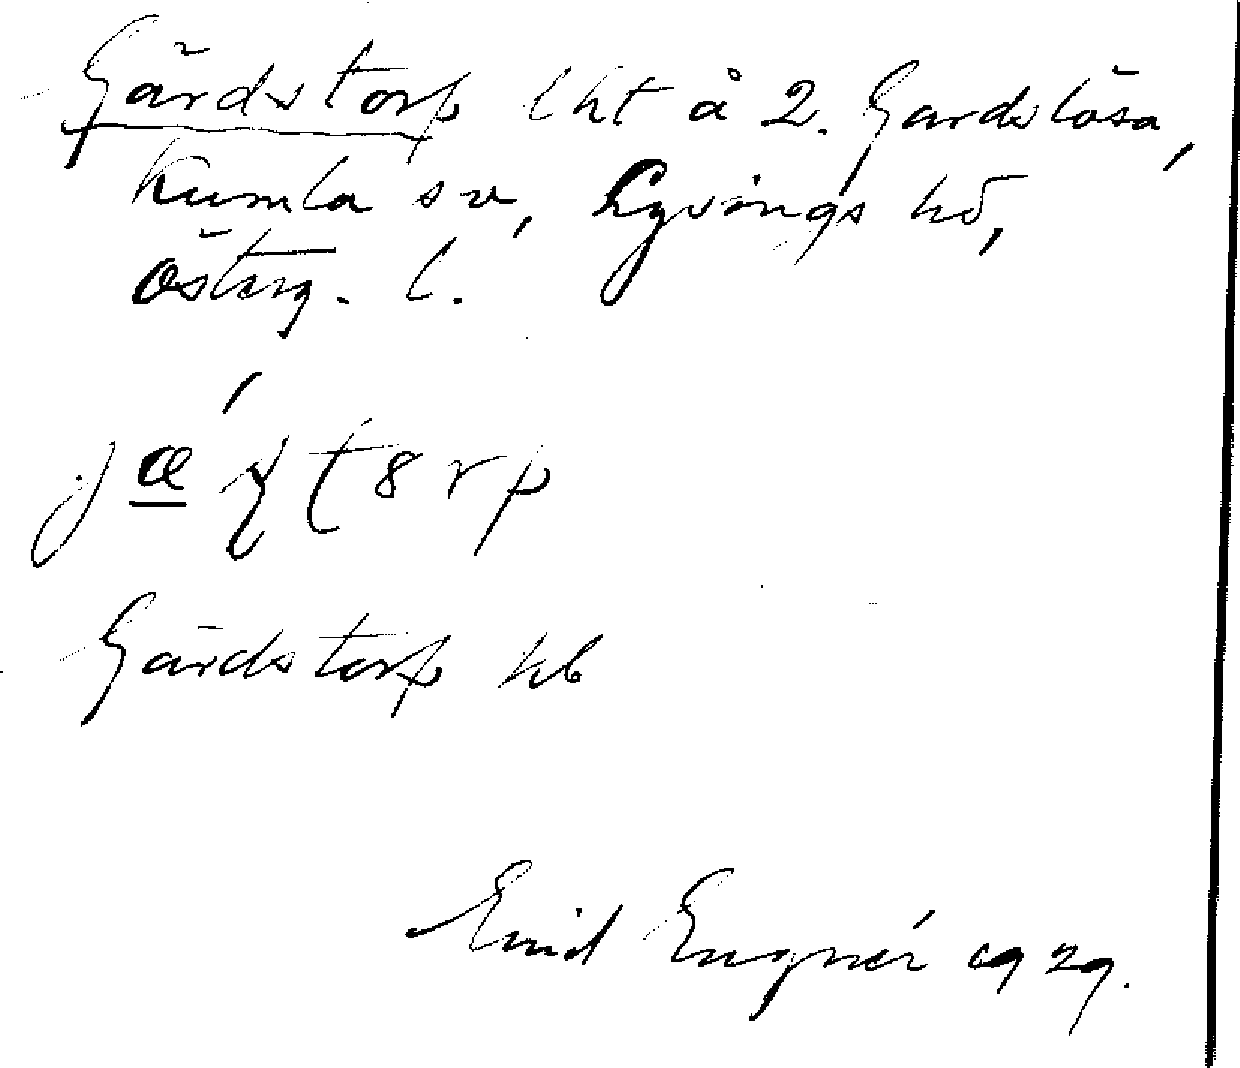 Gärdstorp lht å 2. Gärdslösa,
Kumla sn, Lysings hd,
Österg. l.
Gärdstorp kb
Enid Engnér 1929.